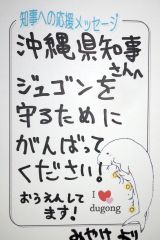 知事への応援メッセージ
沖縄県知事
さんへ
ジュゴンを
守るために
がんばって
ください!
おうえんして
ます!
I ♥
dugong
みやけ より